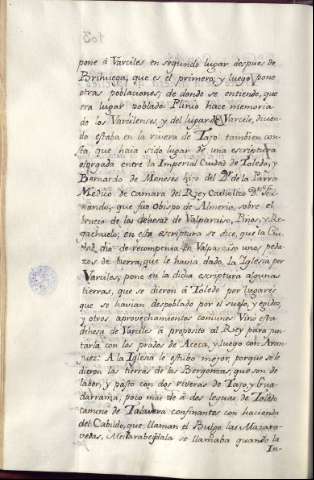 pone á Varciles en segundo lugar despues de
Brihuega, que es el primero, y luego pone
otras poblaciones, de donde se entiende, que
era lugar poblado. Plinio hace memoria
de los Varcilenses, y del lugar de Varcile, dicien-
do estaba en la rivera de Tajo. tambien cons-
ta, que haia sido lugar de una escriptura
otorgada entre la Imperial Ciudad de Toledo, y
Bernardo de Meneses hijo del D.r de la Parra
Medico de camara del Rey Catholico D.n Fer-
nando, que fue Obispo de Almeria, sobre el
trueco de las dehesas de Valparaiso, Pinos, y Re-
gachuelo; en esta escriptura se dice, que la Ciu-
dad, dio de recompensa en Valparaiso unos peda-
zos de tierra, que le havia dado la Iglesia por
Varciles; pone en la dicha escriptura algunas
tierras, que se dieron á Toledo por lugares
que se havian despoblado por el suelo, y egidos,
y otros aprovechamientos comunes. Vino esta
dehesa de Varciles á proposito al Rey para jun-
tarla con los prados de Aceca, y luego con Aran-
juez: A la Iglesia le estubo mejor porque se le
dieron las tierras de las Bergonzas, que son de
labor, y pasto con dos riveras de Tajo, y Gua-
darrama, poco mas de á dos leguas de Toledo
camino de Talavera confinantes con hacienda
del Cabildo, que llaman el Bulgo las Mazara-
vedas, Mentarabejdala se llamaba quando la
In-